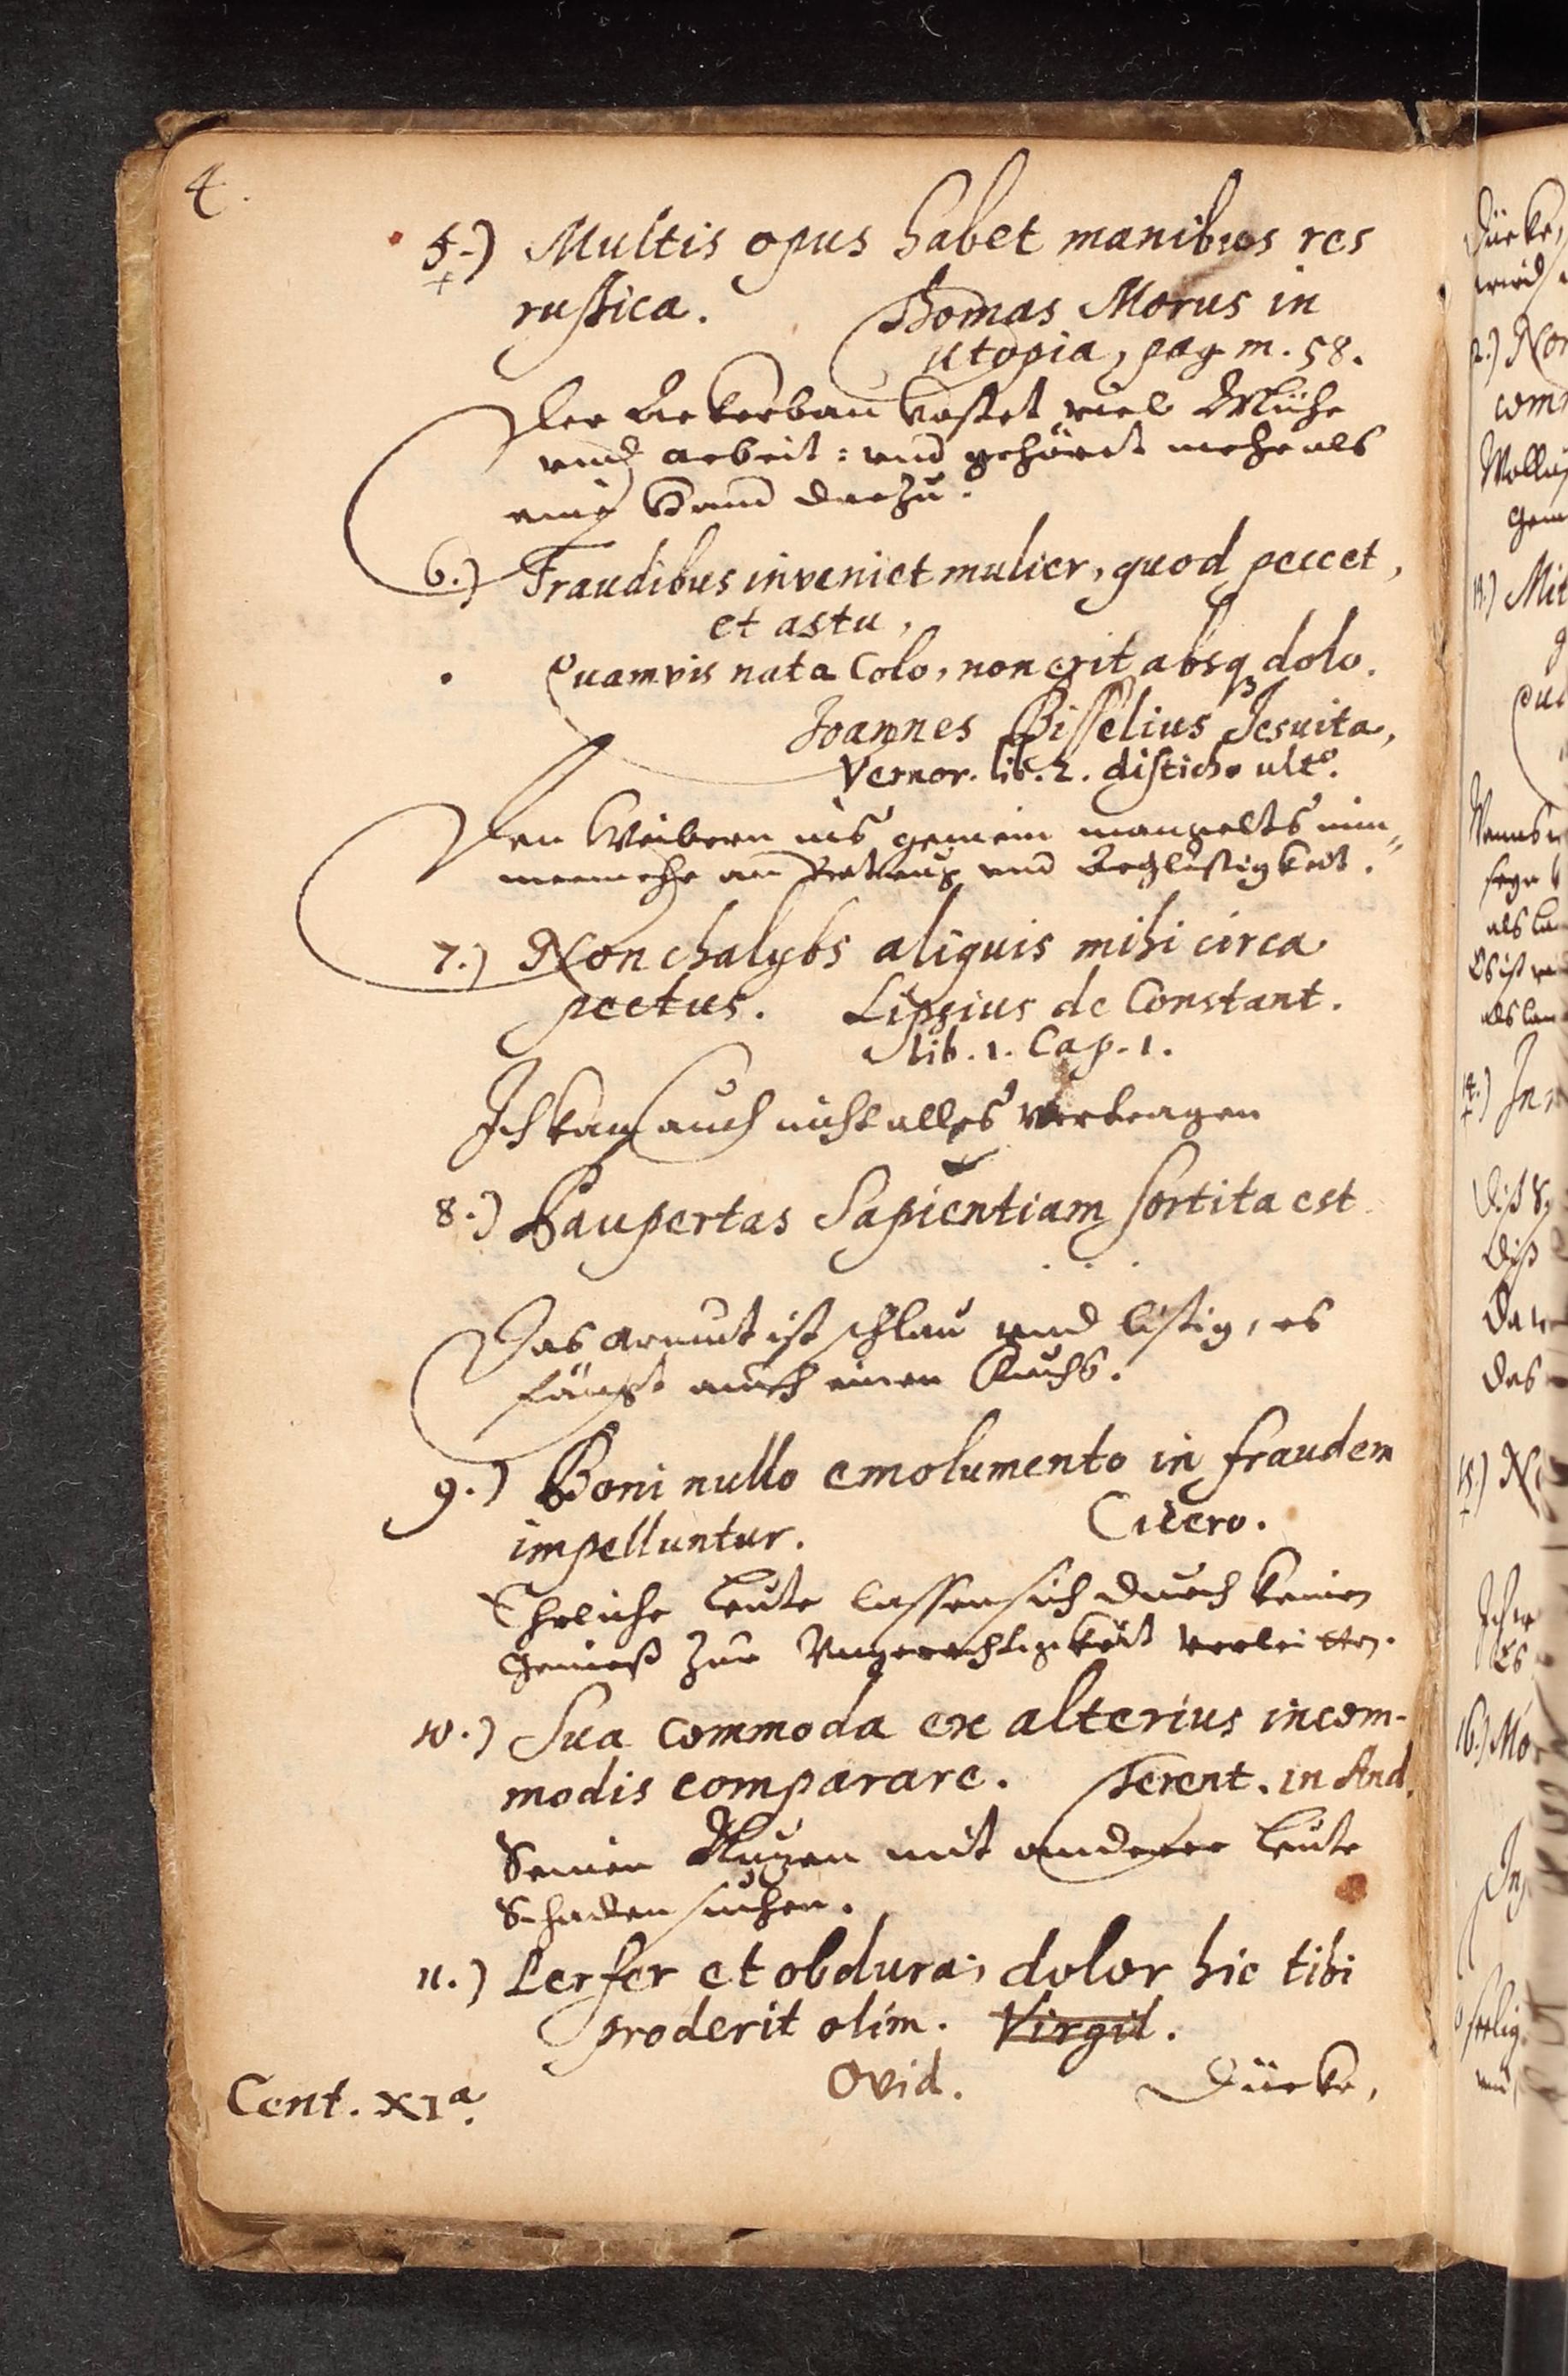 4.
5.) Multis opus habet manibus res
rustica. Thomas Morus in
Utopia, pag m. 58.
Der Ackerbau kostet viel Mühe
und arbeit: und gehördt mehr als
eine Hand darzu.
6.) Fraudibus inveniet mulier, quod peccet,
et astu,
Quamvis nata Colo, non erit absq dolo.
Joannes Bisselius Jesuita,
Vernor. lib. 2. disticho ulto.
Den Weibern ins gemein mangelts nim-
mermehr an Betrug und Arglistigkeit.
7.) Non chalybs aliquis mihi circa
pectus. Lipsius de Constant.
lib. 1. Cap. 1.
Ich kan auch nicht alles vertragen
8.) Paupertas Sapientiam sortita est
Das armut ist schlau und listig, es
fängt auch einen Fuchs.
9.) Boni nullo emolumento in fraudem
impelluntur. Cicero.
Ehrliche Leute lassen sich durch keinen
Genieß zur Ungerechtigkeit verleiten.
10.) Sua commoda ex alterius incom-
modis comparare. Terent. in And.
Seinen Nuzen mit anderer Leute
Schaden suchen.
11.) Perfer et obdura; dolor hic tibi
proderit olim. Virgil.
Ovid. Dücke,
Cent. XIa.